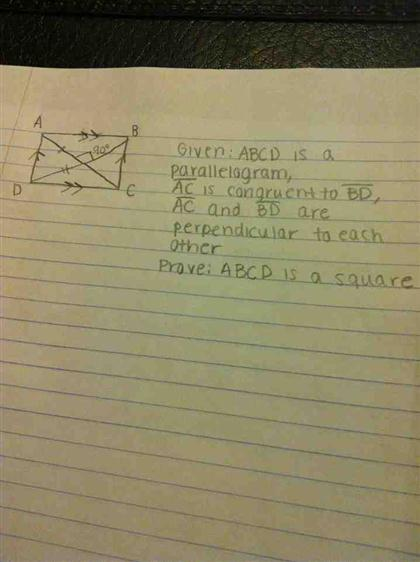 A
B
90°
D
C
Given: ABCD is a
parallelogram,
AC is congruent to BD,
AC and BD are
perpendicular to each
other
Prove: ABCD is a square